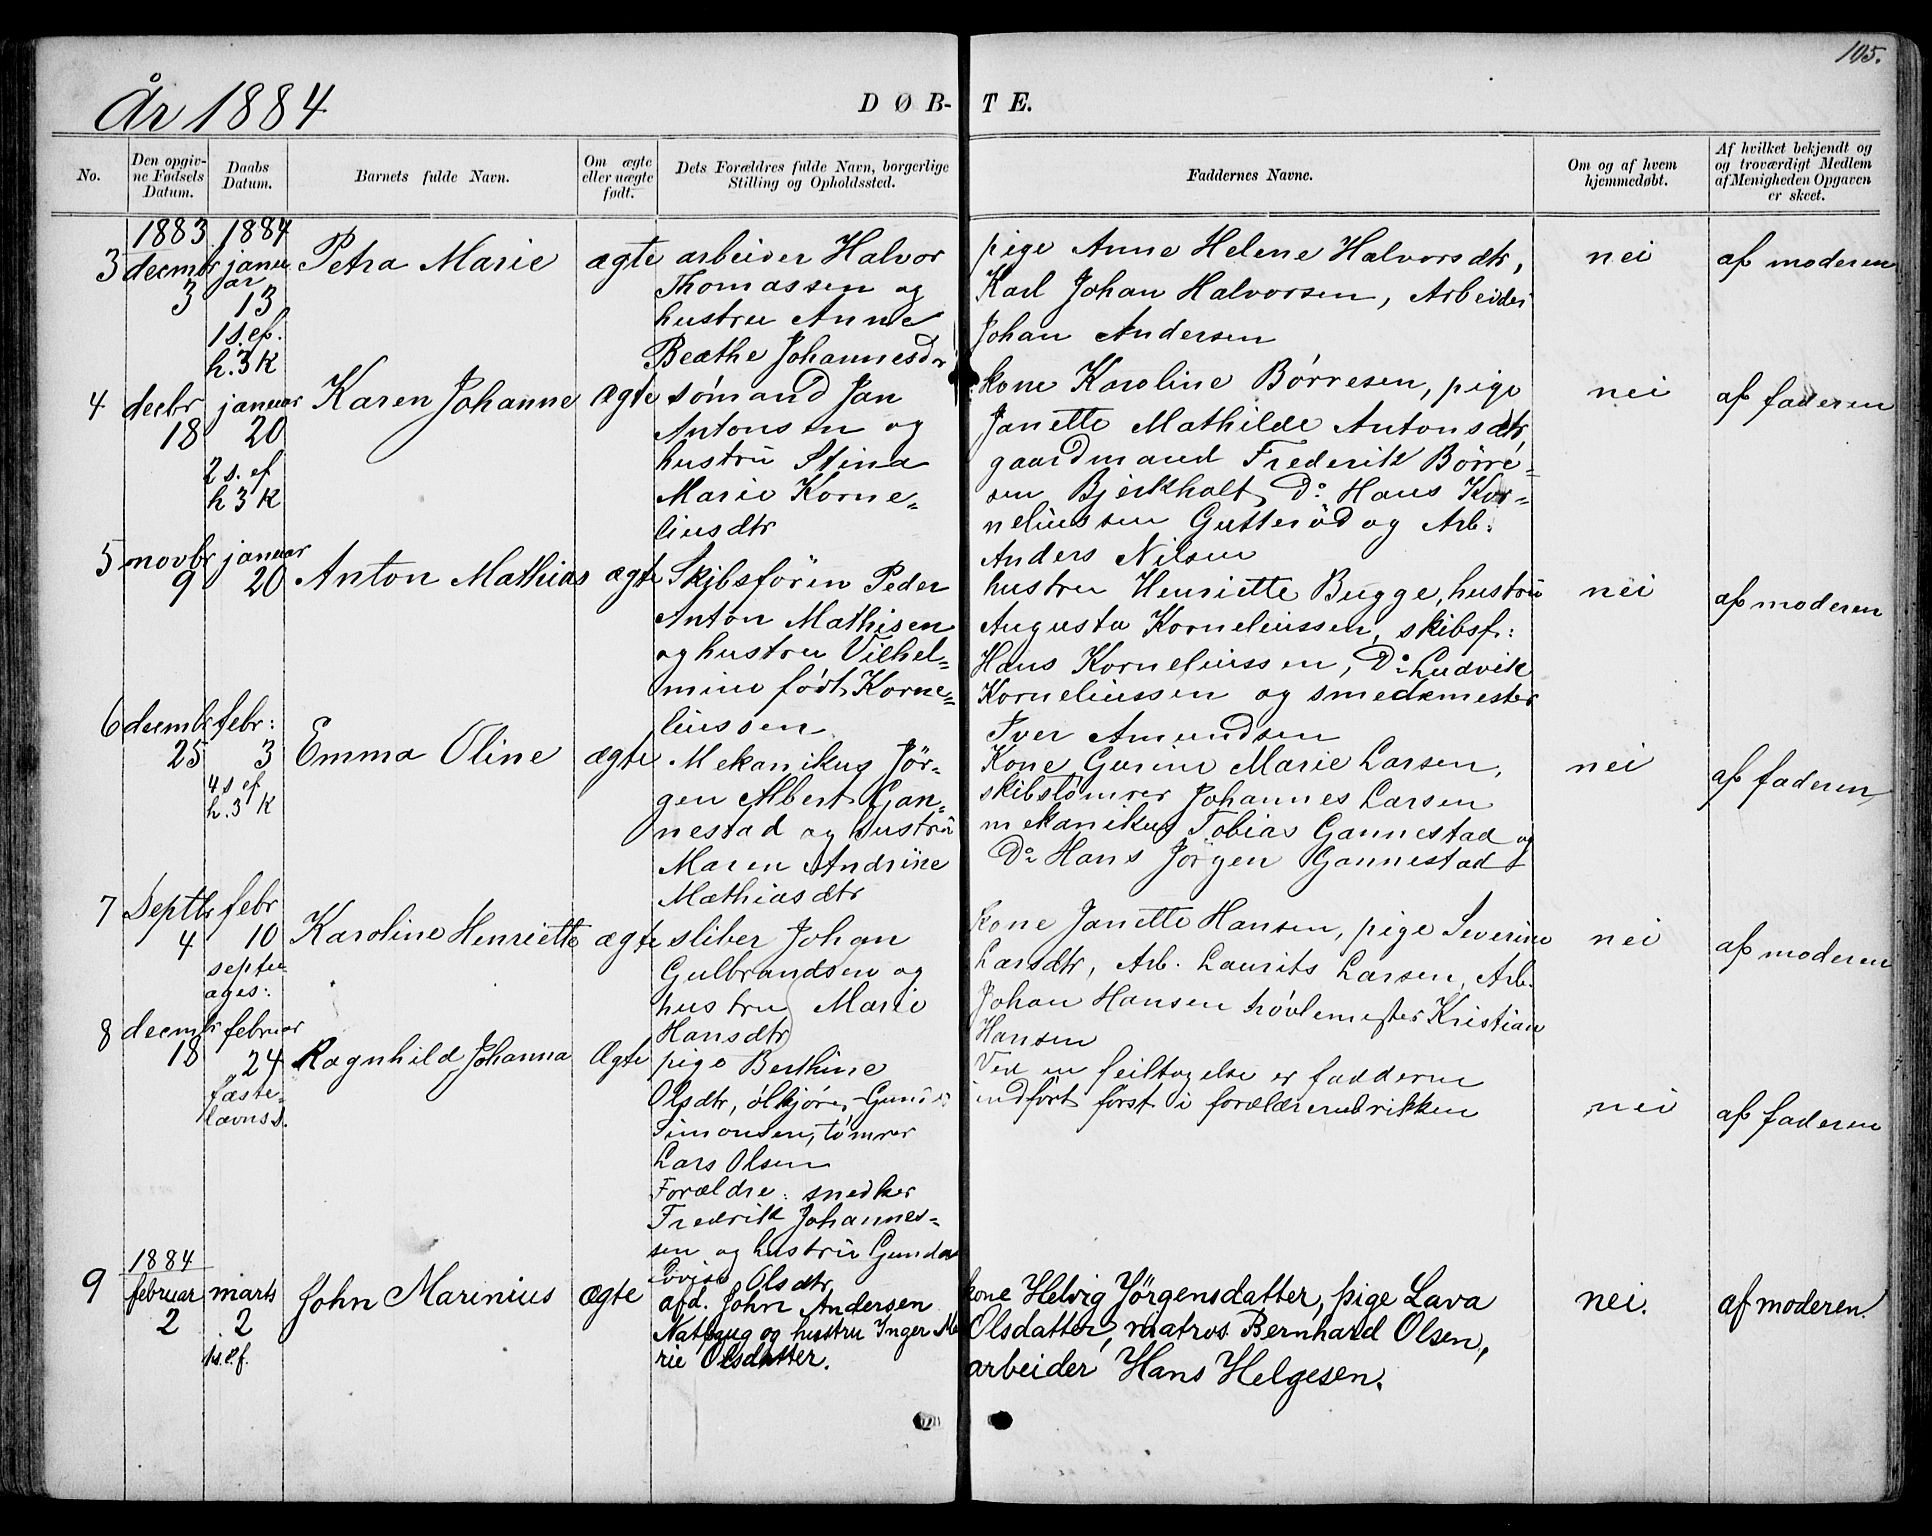 105.
År 1884
DØB- TE.
No.
Den opgiv-
ne Fødsels
Datum.
Daabs
Datum.
Barnets fulde Navn.
Om ægte
eller uægte
født.
Dets Forældres fulde Navn, borgerlige
Stilling og Opholdssted.
Faddernes Navne.
Om og af hvem
hjemmedøbt.
Af hvilket bekjendt og
og troværdigt Medlem
af Menigheden Opgaven
er skeet.
1883. 1884
3 decmbr
3
janu
ar
13
1 s. ef.
h. 3 K
Petra Marie
ægte
arbeider Halvor
Thomassen og
hustru Anne
Beathe Johannesdr
pige Anne Helene Halvorsdtr,
Karl Johan Halvorsen, Arbeider
Johan Andersen
nei
af moderen
4 decbr
18
januar
20
2 s. ef
h 3 K
Karen Johanne
ægte
sömand Jan
Antonsen og
hustru Stina
Marie Korne-
liusdtr
kone Karoline Börresen, pige
Janette Mathilde Antonsdtr,
gaardmand Frederik Börre-
sen Bjerkholt, Do Hans Kor-
neliussen Gutteröd og Arb:
Anders Nilsen
nei
af faderen
5 novbr
9
januar
20
Anton Mathias
ægte
Skibsfören Peder
Anton Mathisen
og hustru Vilhel-
mine födt Korne-
liussen
hustru Henriette Bugge, hustru
Augusta Korneliussen, skibsf:
Hans Korneliussen, Do Ludvik
Korneliussen og smedemester
Iver Amundsen
nei
af moderen
6 decmbr
25
febr:
3
4 s ef
h. 3 K
Emma Oline
ægte
Mekanikus Jör-
gen Albert Gan-
nestad og hustru
Maren Andrine
Mathiasdtr
Kone Gurine Marie Larsen,
skibstömrer Johannes Larsen
mekanikus Tobias Gannestad og
Do Hans Jörgen Gannestad
nei
af faderen
7 Septbr
4
febr
10
septu-
ages:
Karoline Henriette
ægte
sliber Johan
Gulbrandsen og
hustru Marie
Hansdtr
Kone Janette Hansen, pige Severine
Larsdtr, Arb. Laurits Larsen, Arb.
Johan Hansen hövlemester Kristian
Hansen
nei
af moderen
8 decmbr
18
februar
24
faste-
lavnss.
Ragnhild Johanna
Ægte
pige Berthine
Olsdtr, ölkjörer
Simonsen, tömrer
Lars Olsen
Forældre: snedker
Fredrik Johannes-
sen og hustru Gunda
Lovise Olsdtr
Ved en feiltagelse er fadderne
indfört först i forælrerubrikken
nei
af faderen
1884
9 februar
2
marts
2
1 s. e. f.
John Marinius
Ægte
afd. John Andersen
Nathaug og hustru Inger Ma
rie Olsdatter.
kone Helvig Jörgensdatter, pige Lava
Olsdatter, matros Bernhard Olsen,
arbeider Hans Helgesen.
nei.
af moderen.